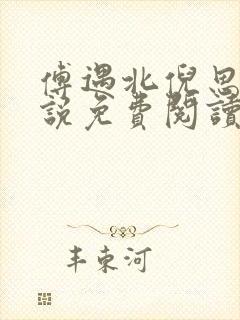 傅遇北倪思
說免費閱讀
丰東河